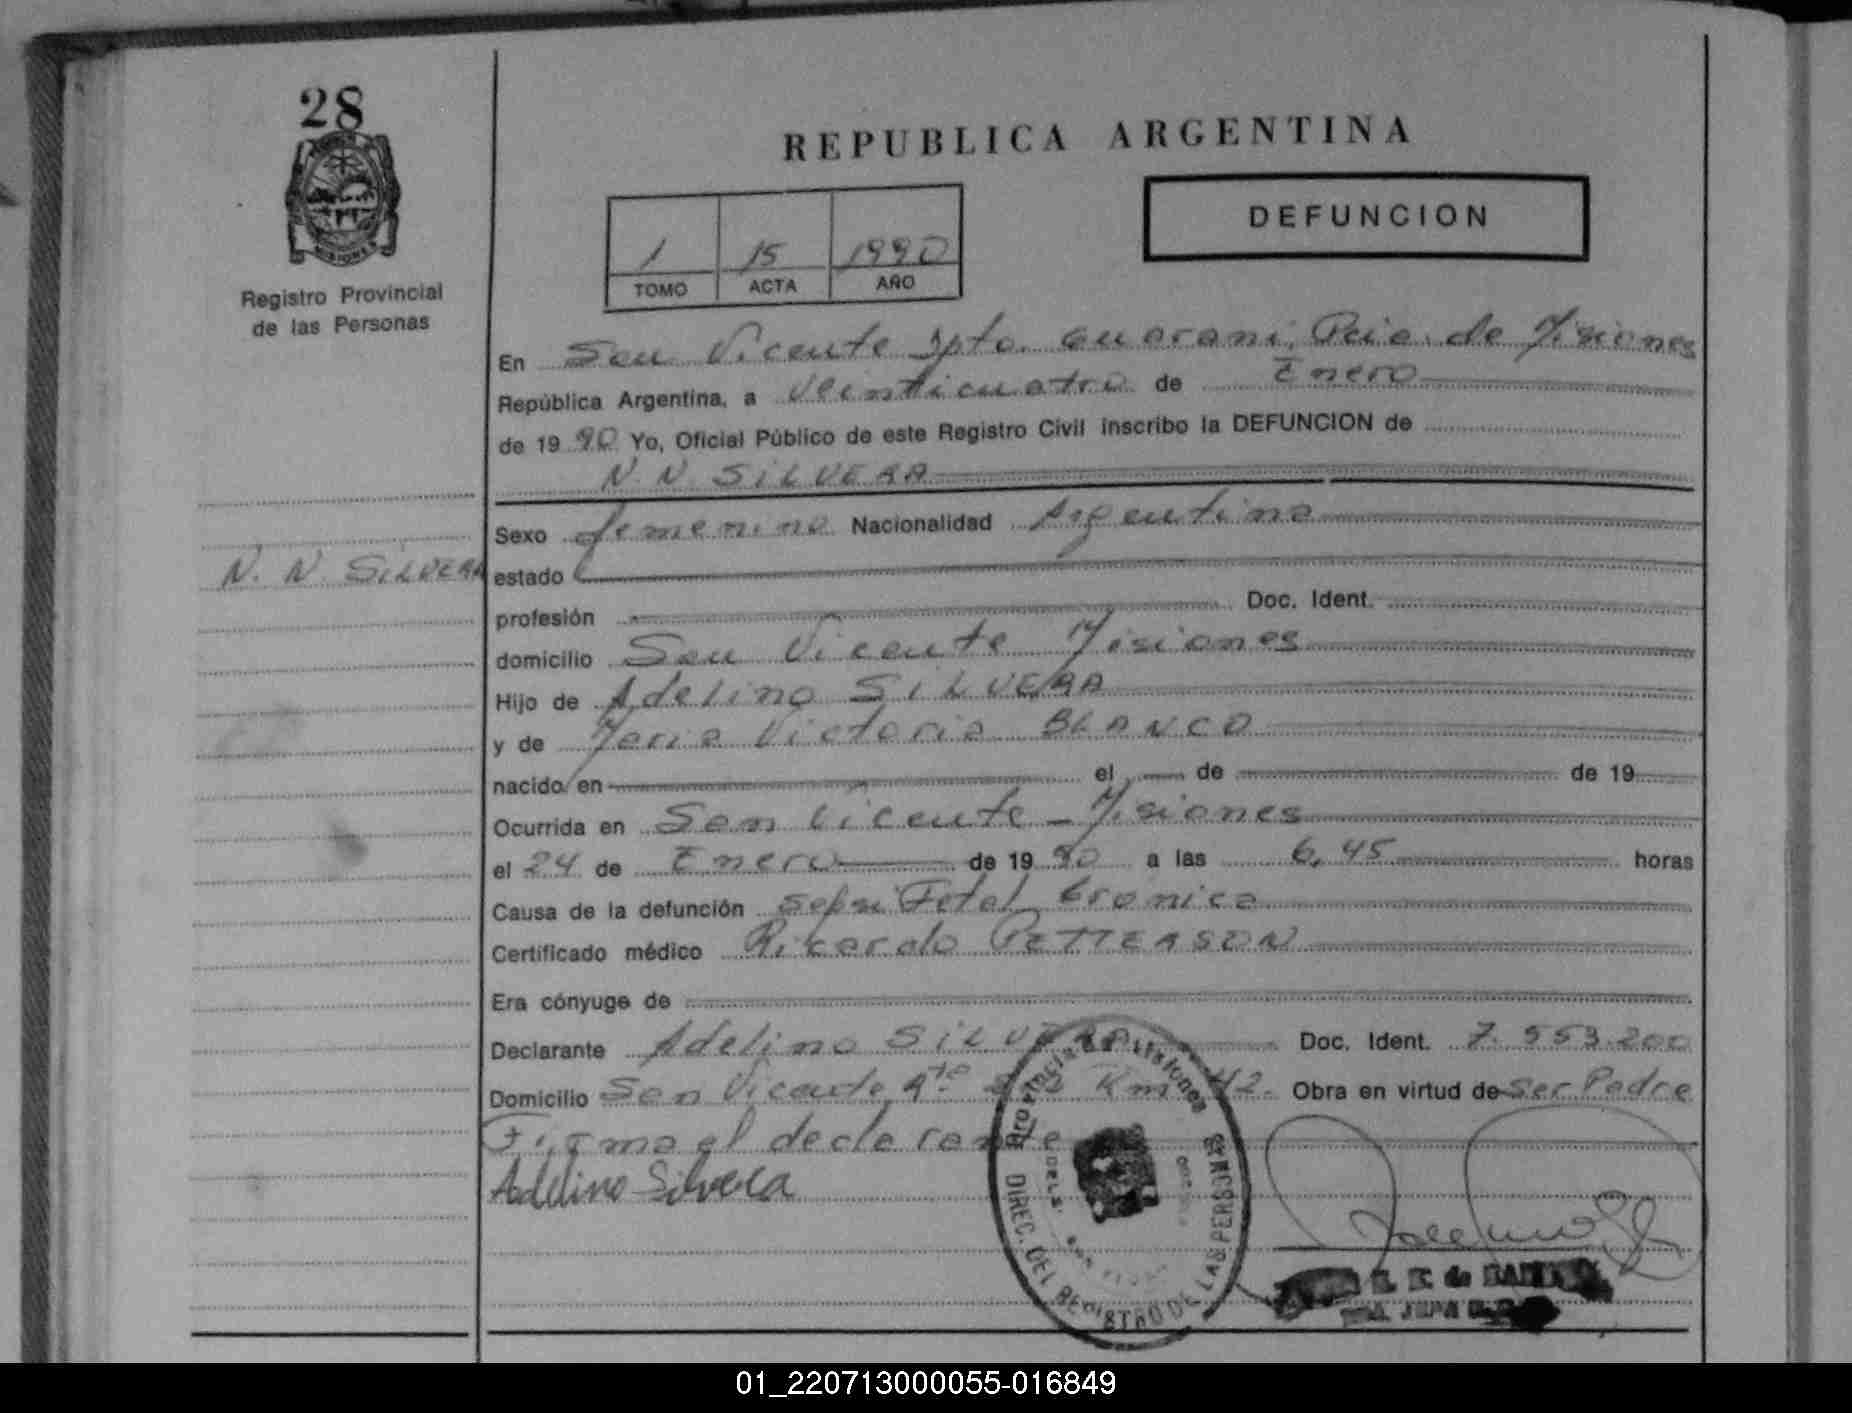 28
MISIONES
Registro Provincial
de las Personas
REPUBLICA ARGENTINA
1 15 1990
TOMO ACTA AÑO
DEFUNCION
En San Vicente Dpto. Guarani, Pcia. de Misiones
República Argentina, a Veinticuatro de Enero
de 19 90 Yo, Oficial Público de este Registro Civil inscribo la DEFUNCION de
N. N. SILVERA
N. N. SILVERA
Sexo femenino Nacionalidad Argentina
estado
profesión Doc. Ident.
domicilio San Vicente Misiones
Hijo de Adelino SILVERA
y de Maria Victoria BLANCO
nacido en el de de 19
Ocurrida en San Vicente - Misiones
el 24 de Enero de 19 90 a las 6,45 horas
Causa de la defunción sepsi Fetal Cronica
Certificado médico Ricardo PETTERSON
Era cónyuge de
Declarante Adelino SILVERA Doc. Ident. 7.553.200
Domicilio San Vicente Km 42. Obra en virtud de Ser Padre
Firma el declarante
Adelino Silvera
Provincia de Misiones
DIREC. DEL REGISTRO DE LAS PERSONAS
01_220713000055-016849